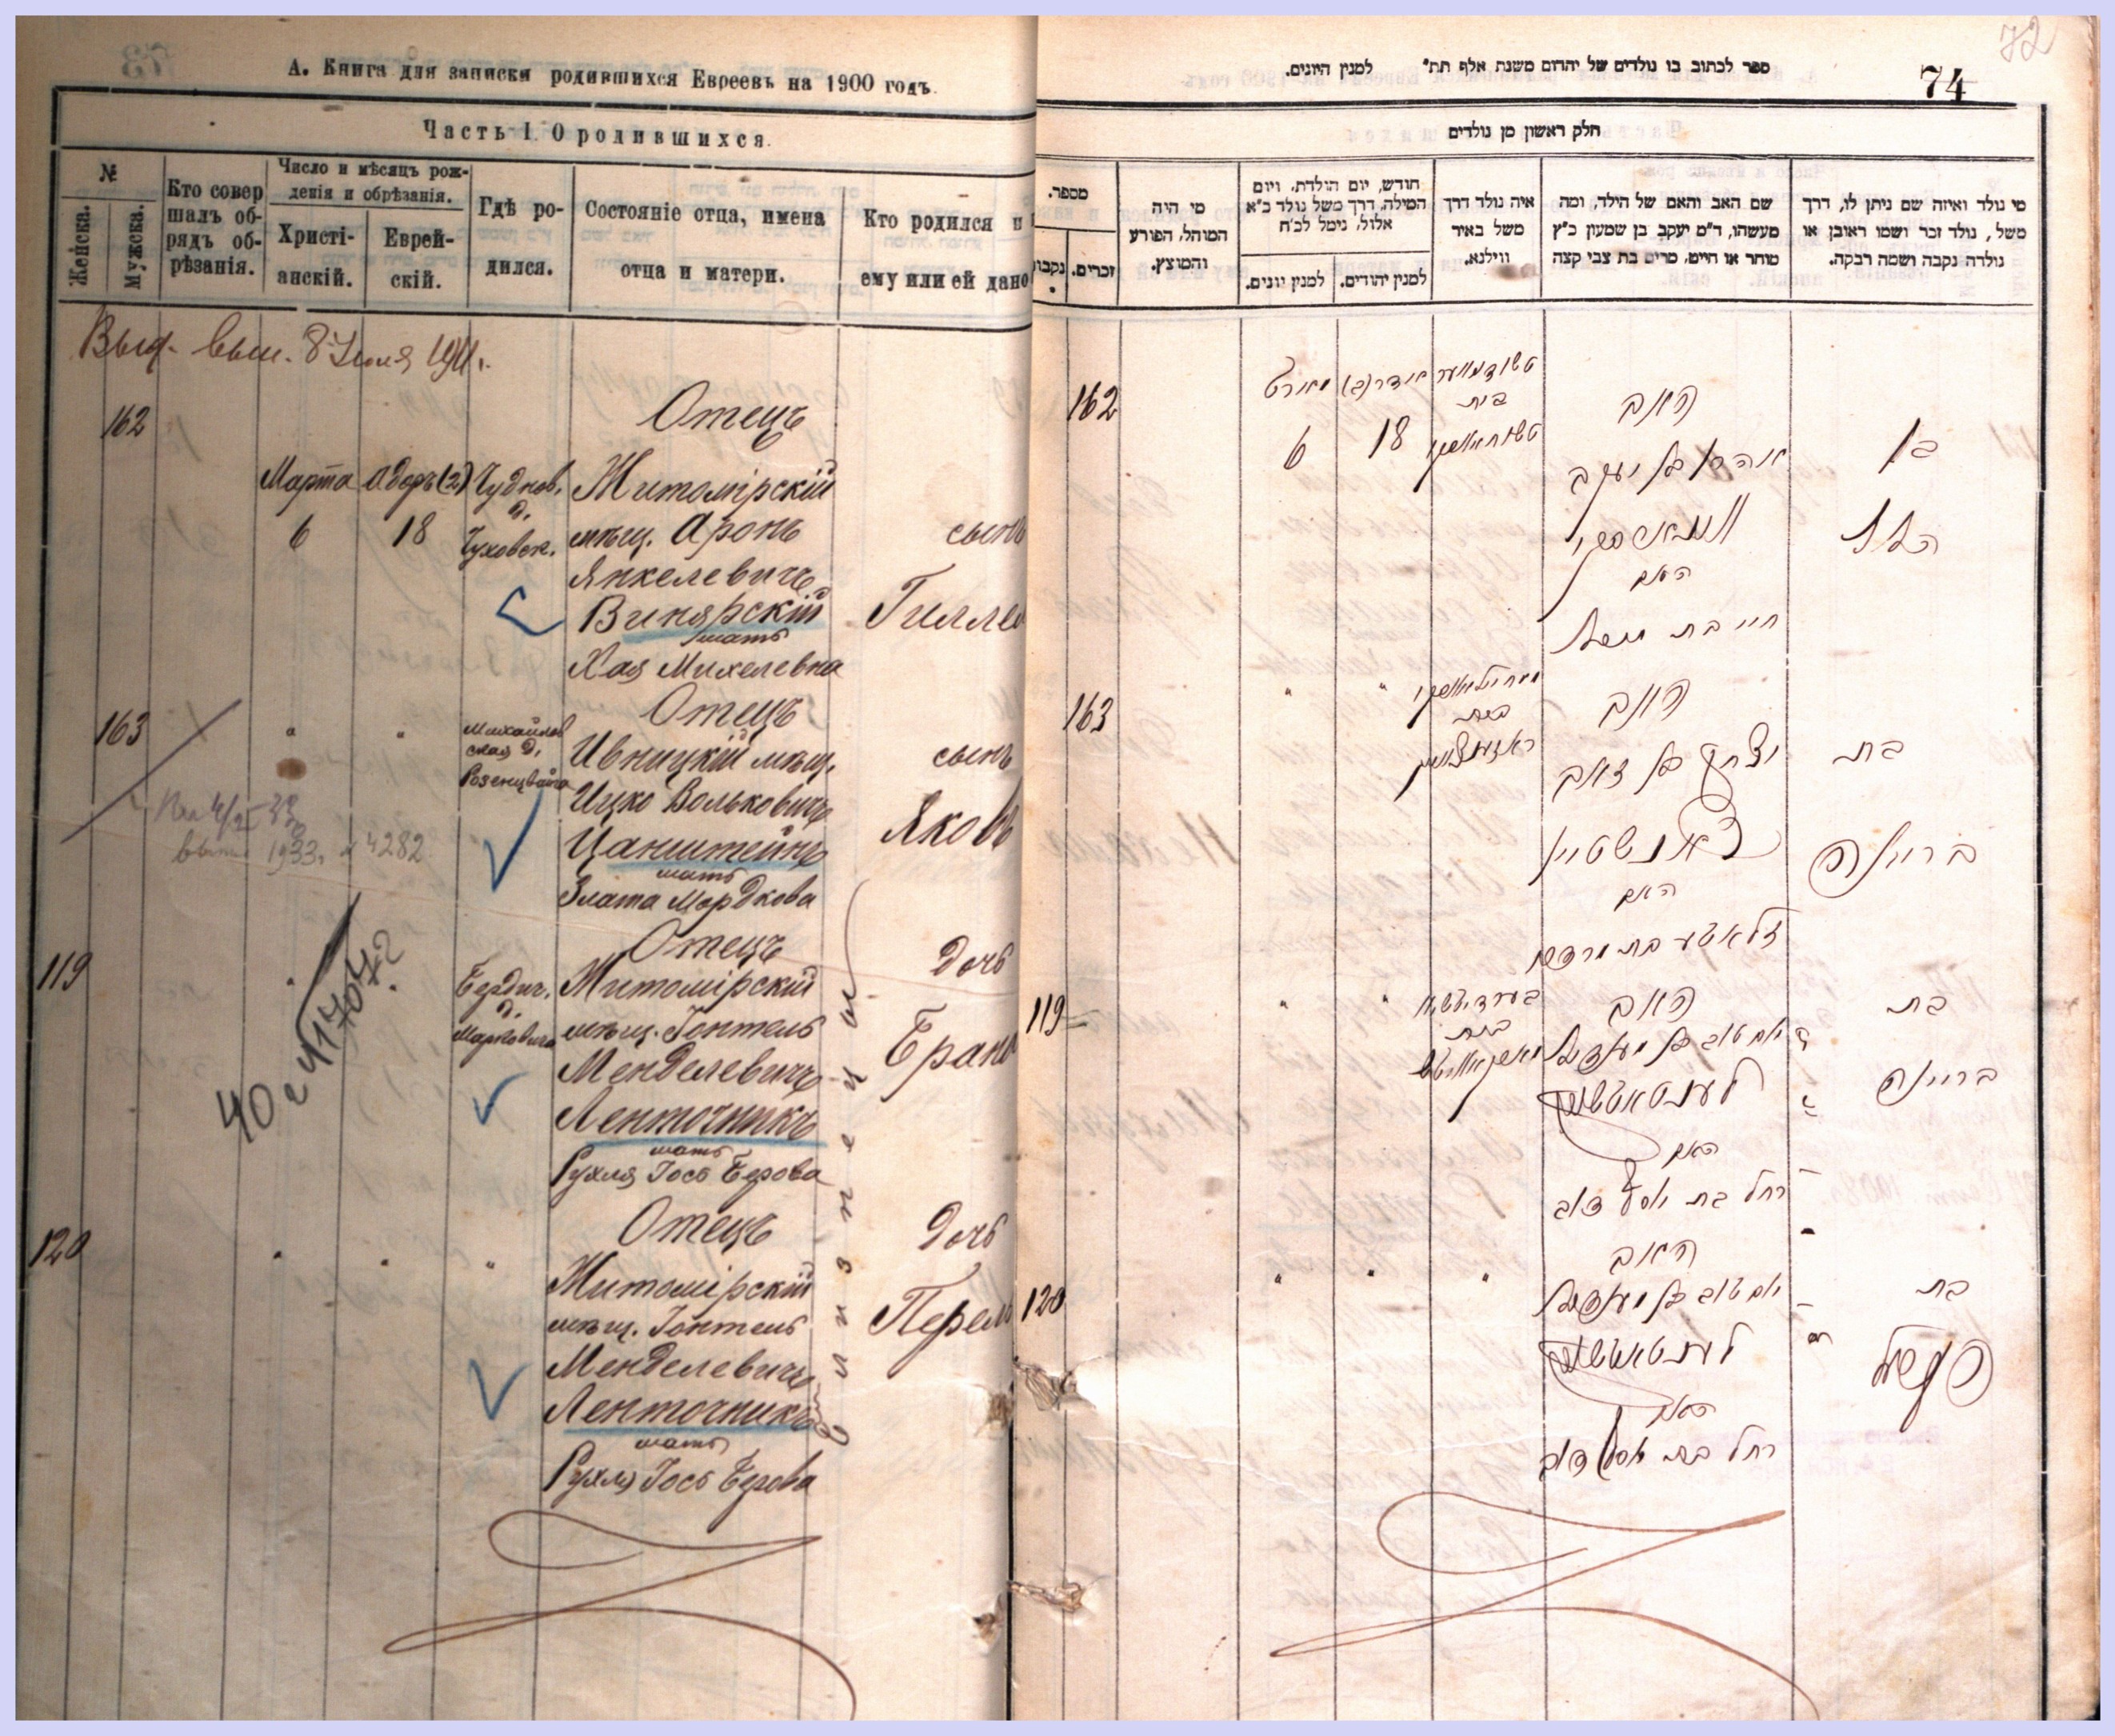 А. Книга для записки родившихся Евреевъ на 1900 годъ.
Часть I. О родившихся.
№
Женска.
Мужска.
Кто совер
шалъ об-
рядъ об-
рѣзанія.
Число и мѣсяцъ рож-
денія и обрѣзанія.
Христі-
анскій.
Еврей-
скій.
Гдѣ ро-
дился.
Состояніе отца, имена
отца и матери.
Кто родился и
ему или ей дано
8 Іюля 1911.
162
Марта
6
Адоръ (2)
18
Чуднов.
д.
Чуховск.
Отецъ
Житомірскій
мѣщ. Аронъ
Янкелевичъ
Винярскій
мать
Хая Михелевна
сынъ
Гиллел
163
"
"
Михайлов
ская д.
Розенцвейга
Отецъ
Ивницкій мѣщ.
Ицко Вольковичъ
Цанштейнъ
мать
Злата Мордкова
сынъ
Яковъ
1933 4282
40 2 417042
119
"
Бердич.
д.
Марковича
Отецъ
Житомірскій
мѣщ. Іонтель
Менделевичъ
Ленточникъ
мать
Рухля Іось Берова
дочь
Бран
близнецы
120
"
"
"
Отецъ
Житомірскій
мѣщ. Іонтель
Менделевичъ
Ленточникъ
мать
Рухля Іось Берова
дочь
Перель
72
74
ספר לכתוב בו נולדים של יהדום משנת אלף תת" למנין היונים.
חלק ראשון מן נולדים
מספר.
נקבות
זכרים.
מי היה
המוהל, הפורע
והמוצץ.
חודש, יום הולדת, ויום
המילה, דרך משל נולד כ"א
אלול, נימל לכ"ח
למנין יונים.
למנין יהודים.
איה נולד דרך
משל באיר
ווילנא.
שם האב והאם של הילד, ומה
מעשהו, ד"מ יעקב בן שמעון כ"ץ
סוחר או חייט, מרים בת צבי קצה
מי נולד ואיזה שם ניתן לו, דרך
משל, נולד זכר ושמו ראובן או
נולדה נקבה ושמה רבקה.
162
מארט
6
18
בית
האב
אהרן בן יעקב
האם
חיי בת
בן
הלל
163
"
"
בית
האב
יצחק בן זאב
האם
זלאטע בת מרדכי
בת
בריינה
119
"
"
בית
האב
יום טוב בן מענדיל
לענטאטשניק
האם
רחל בת יוסף דוב
בת
בריינה
120
"
"
"
האב
יום טוב בן מענדיל
לענטאטשניק
האם
רחל בת יוסף דוב
בת
פערל